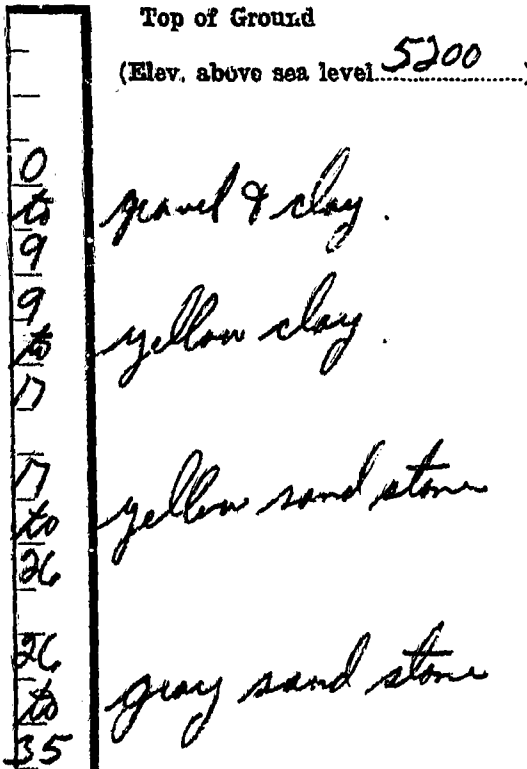 Top of Ground
(Elev. above sea level 5200)
0
to gravel & clay.
9
9
to yellow clay.
17
17
to yellow sand stone
26
26
to gray sand stone
35